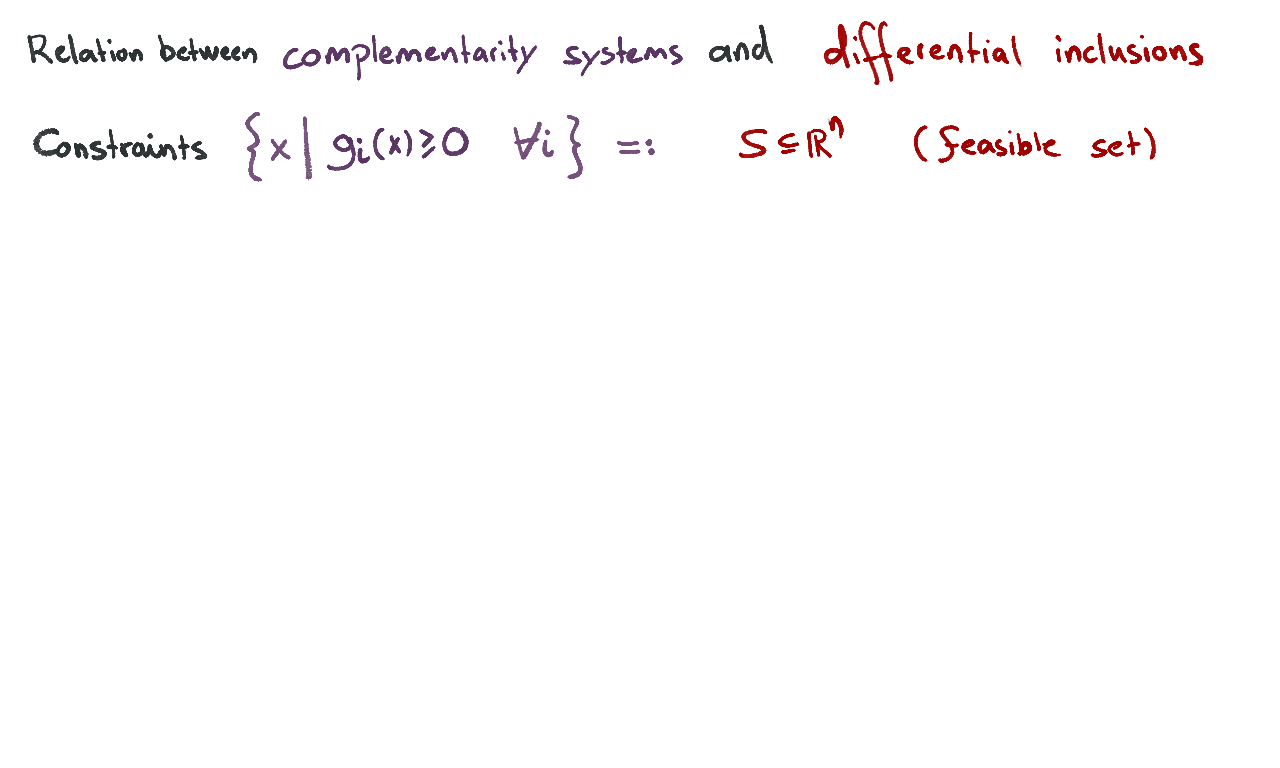 Relation between complementarity systems and differential inclusions
Constraints {x | gᵢ(x) ≥ 0 ∀i} =: S ⊆ ℝⁿ (feasible set)